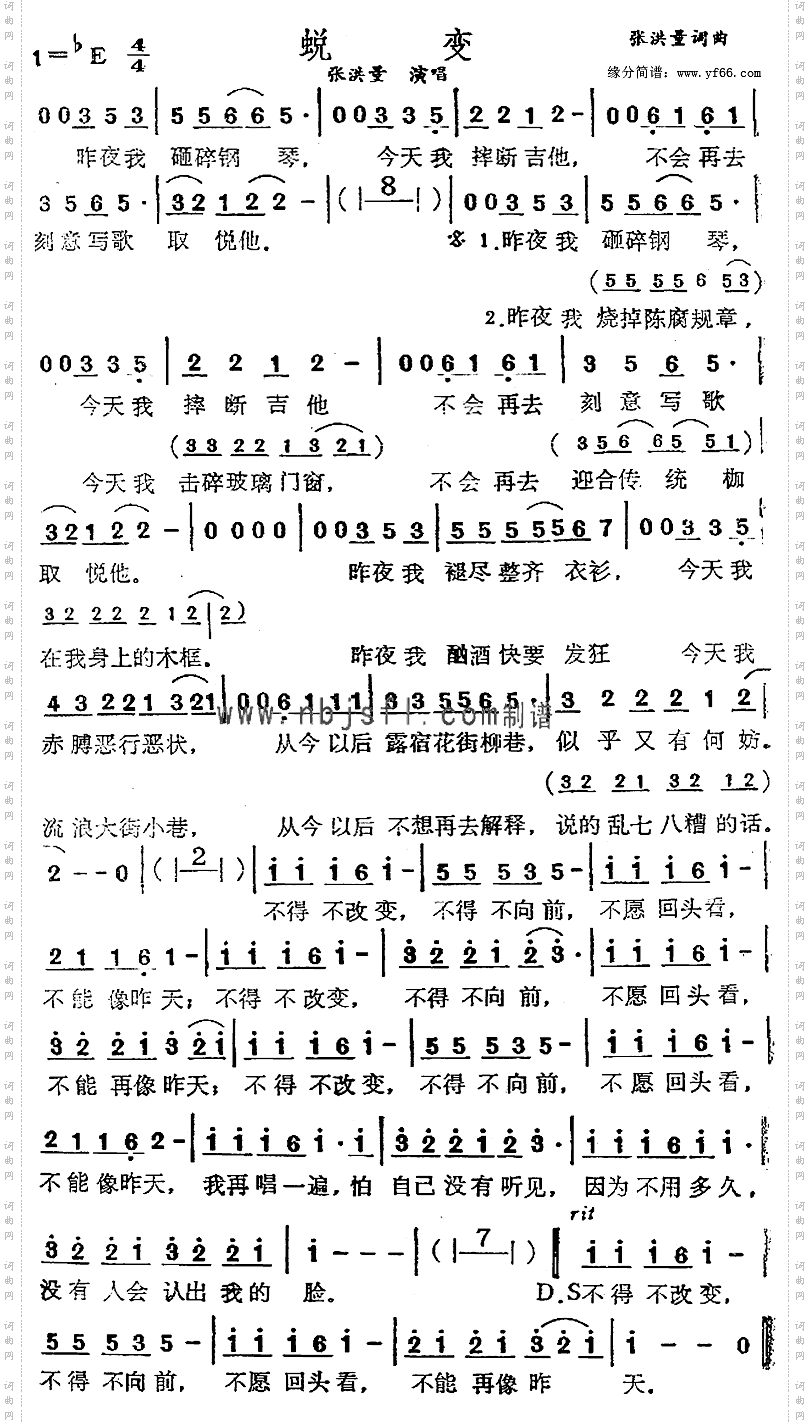 1=♭E 4/4 蜕 变 张洪量词曲
张洪量 演唱 缘分简谱：www.yf66.com
0 0 3 5 3 | 5 5 6 6 5 · | 0 0 3 3 5 | 2 2 1 2 - | 0 0 6 1 6 1 |
昨夜我 砸碎钢 琴， 今天我 摔断吉他， 不会再去
3 5 6 5 · | 3 2 1 2 2 - | ( | 8 | ) | 0 0 3 5 3 | 5 5 6 6 5 · |
刻意写歌 取 悦他。 1.昨夜我 砸碎钢 琴，
( 5 5 5 5 6 5 3 )
2.昨夜我 烧掉陈腐规章，
0 0 3 3 5 | 2 2 1 2 - | 0 0 6 1 6 1 | 3 5 6 5 · |
今天我 摔断吉他 不会再去 刻意写歌
( 3 3 2 2 1 3 2 1 ) ( 3 5 6 6 5 5 1 )
今天我 击碎玻璃门窗， 不会再去 迎合传统枷
3 2 1 2 2 - | 0 0 0 0 | 0 0 3 5 3 | 5 5 5 5 5 6 7 | 0 0 3 3 5 |
取 悦他。 昨夜我 褪尽整齐 衣衫， 今天我
3 2 2 2 2 1 2 | 2 )
在我身上的木框。 昨夜我 酗酒快要 发狂 今天我
4 3 2 2 1 3 2 1 | 0 0 6 1 1 1 | 3 3 5 5 6 5 · | 3 2 2 2 1 2
www.nbjsfl.com制谱
赤膊恶行恶状， 从今以后 露宿花街柳巷， 似乎又有何妨。
( 3 2 2 1 3 2 1 2 )
流浪大街小巷， 从今以后 不想再去解释，说的乱七八糟的话。
2 - - 0 | ( | 2 | ) | 1 1 1 6 1 - | 5 5 5 3 5 - | 1 1 1 6 1 - |
不得不改变， 不得不向前， 不愿回头看，
2 1 1 6 1 - | 1 1 1 6 1 - | 3 2 2 1 2 3 · | 1 1 1 6 1 - |
不能像昨天；不得不改变， 不得不向前， 不愿回头看，
3 2 2 1 3 2 1 | 1 1 1 6 1 - | 5 5 5 3 5 - | 1 1 1 6 1 - |
不能再像昨天；不得不改变，不得不向前， 不愿回头看，
2 1 1 6 2 - | 1 1 1 6 1 · 1 | 3 2 2 1 2 3 · | 1 1 1 6 1 · |
不能像昨天， 我再唱一遍，怕 自己没有听见， 因为不用多久，
rit
3 2 2 1 3 2 2 1 | 1 - - - | ( | 7 | ) ‖ 1 1 1 6 1 - |
没有人会认出我的 脸。 D.S不得不改变，
5 5 5 3 5 - | 1 1 1 6 1 - | 2 1 2 1 3 2 1 | 1 - - 0 ‖
不得不向前， 不愿回头看， 不能再像昨 天。